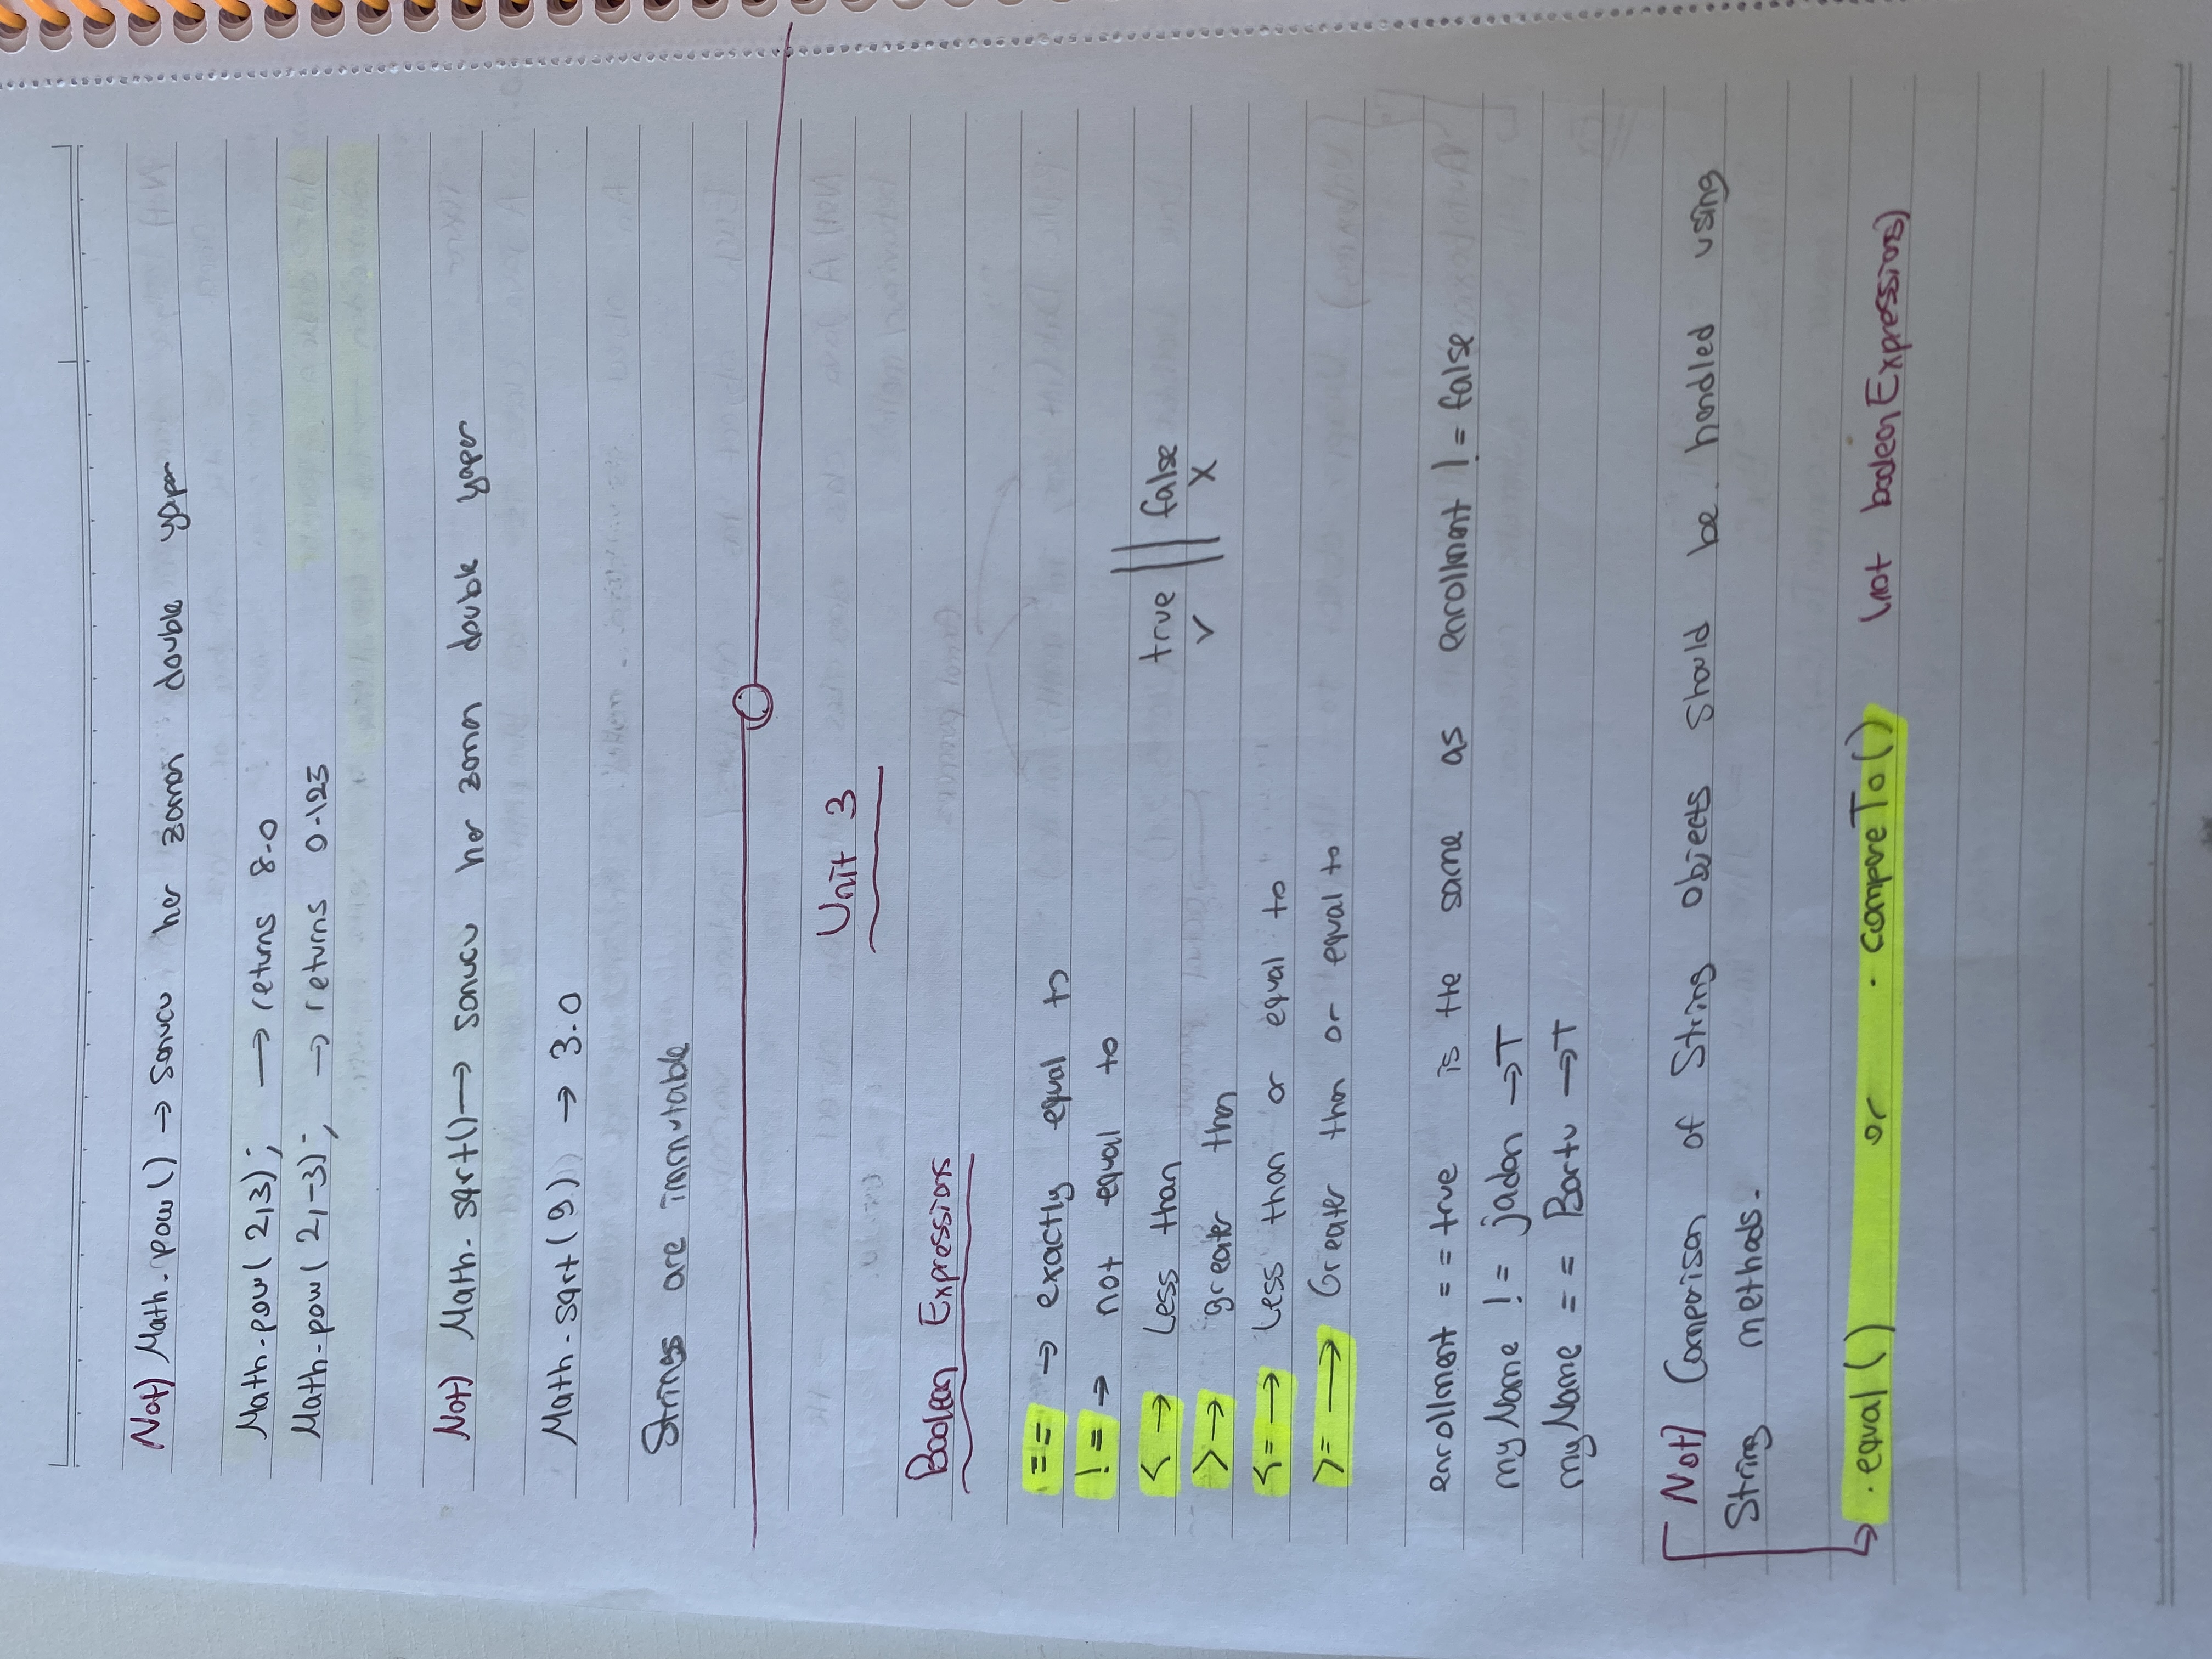 Not) Math.pow() → sonucu her zaman double yapar
Math.pow(2,3); → returns 8.0
Math.pow(2,-3); → returns 0.125
Not) Math.sqrt() → sonucu her zaman double yapar
Math.sqrt(9) → 3.0
Strings are immutable
Unit 3
Boolean Expressions
== → exactly equal to
!= → not equal to
< → Less than
> → greater than
<= → Less than or equal to
>= → Greater than or equal to
true || false
✓ X
enrollment == true is the same as enrollment != false
myName != jadon → T
myName == Bartu → T
Not) Comparison of String objects should be handled using
String methods.
↳ .equal() or .compareTo() (not boolean Expressions)